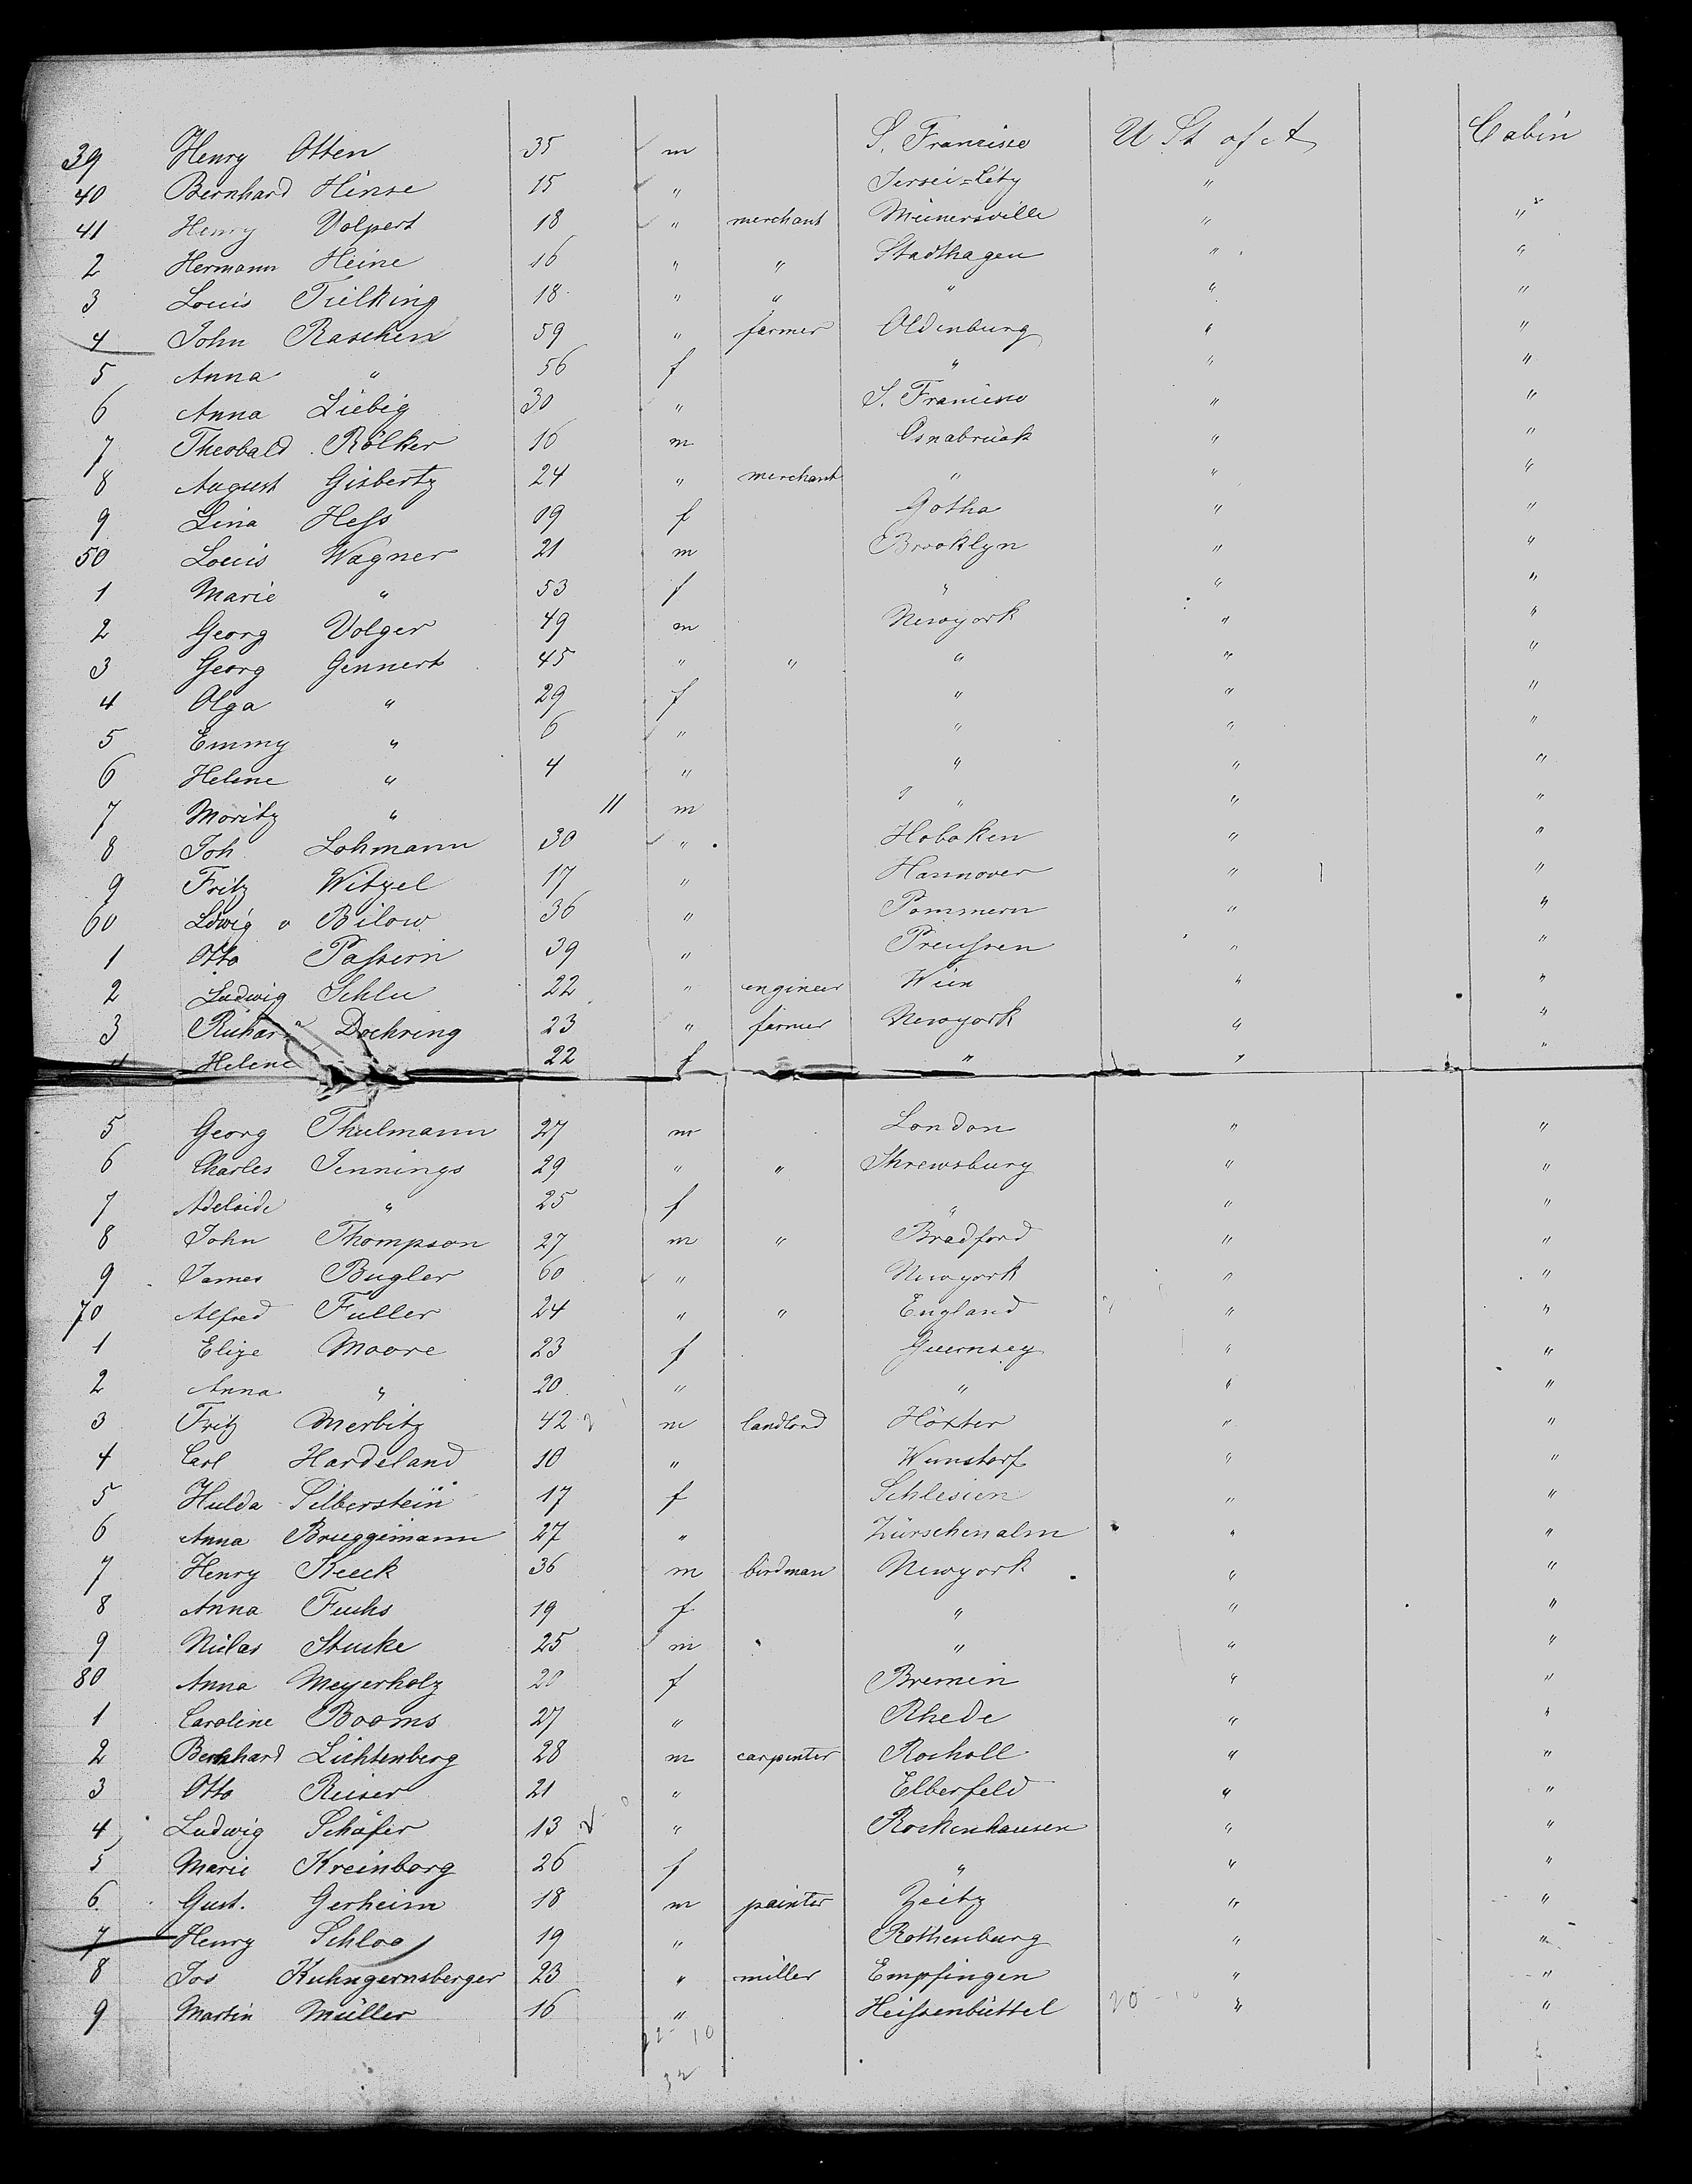 39 Henry Otten 35 m S. Francisco U St of A Cabin
40 Bernhard Hinse 15 " Jersei=City "
41 Henry Volpert 18 " merchant Meinersville " "
2 Hermann Heine 16 " " Stadthagen " "
3 Louis Tielking 18 " " " " "
4 John Raschen 59 " farmer Oldenburg " "
5 Anna " 56 f " " "
6 Anna Liebig 30 " S. Francisco " "
7 Theobald Rölker 16 m Osnabrück " "
8 August Gisbertz 24 " merchant " " "
9 Lina Heſs 19 f Gotha " "
50 Louis Wagner 21 m Brooklyn " "
1 Marie " 53 f " " "
2 Georg Volger 49 m Newyork " "
3 Georg Gennert 45 " " " " "
4 Olga " 29 f " " "
5 Emmy " 6 " " " "
6 Helene " 4 " " " "
7 Moritz " 11 m " " "
8 Joh Lohmann 30 " Hoboken " "
9 Fritz Witzel 17 " Hannover " "
60 Ldwig v Bilow 36 " Pommern " "
1 Otto Paſsern 39 " Preuſsen " "
2 Ludwig Schlu 22 " engineer Wien " "
3 Richard Doehring 23 " farmer Newyork " "
4 Helene 22 f " " "
5 Georg Thulmann 27 m London " "
6 Charles Jennings 29 " " Shrewsburg " "
7 Adelaide " 25 f " " "
8 John Thompson 27 m " Bradford " "
9 James Bugler 60 " Newyork " "
70 Alfred Fuller 24 " " England " "
1 Elize Moore 23 f Guernsey " "
2 Anna " 20 " " " "
3 Fritz Merbitz 42 m landlord Höxter " "
4 Carl Hardeland 10 " Wunstorf " "
5 Hulda Silberstein 17 f Schlesien " "
6 Anna Bruggimann 27 " Zürschenalm " "
7 Henry Keeck 36 m birdman Newyork " "
8 Anna Fuchs 19 f " " "
9 Niclas Stucke 25 m " " "
80 Anna Meyerholz 20 f Bremen " "
1 Caroline Booms 27 " Rhede " "
2 Bernhard Lichtenberg 28 m carpenter Rocholl " "
3 Otto Reiser 21 " Elberfeld " "
4 Ludwig Schäfer 13 " Rockenhausen " "
5 Marie Kreinborg 26 f " " "
6 Gust. Gerheim 18 m painter Zeitz " "
7 Henry Schloo 19 " Rothenburg " "
8 Jos Kuhngernsberger 23 " miller Empfingen " "
9 Martin Müller 16 " Heiſsenbüttel 20-10 " "
22-10
32